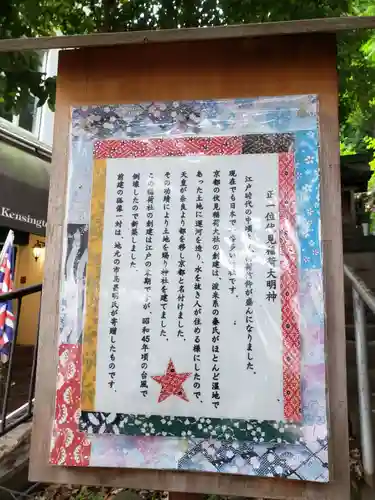 正一位伏見稲荷大明神
江戸時代の中頃
荷信仰が盛んになりました。
現在でも日本で
多い
社です。
京都の伏見稲荷大社の創建は、渡来系の秦氏がほとんど湿地で
あった土地に運河を造り、水を抜き人が住める様にしたので、
天皇が奈良より都を移し京都と名付けました。
その功績により土地を賜り神社を建てました。
この稲荷社の創建は江戸の末期ですが、昭和45年頃の台風で
倒壊したので新築しました。
前建の狐像一対は、地元の市島甚明氏が寄贈したものです。
Kensington